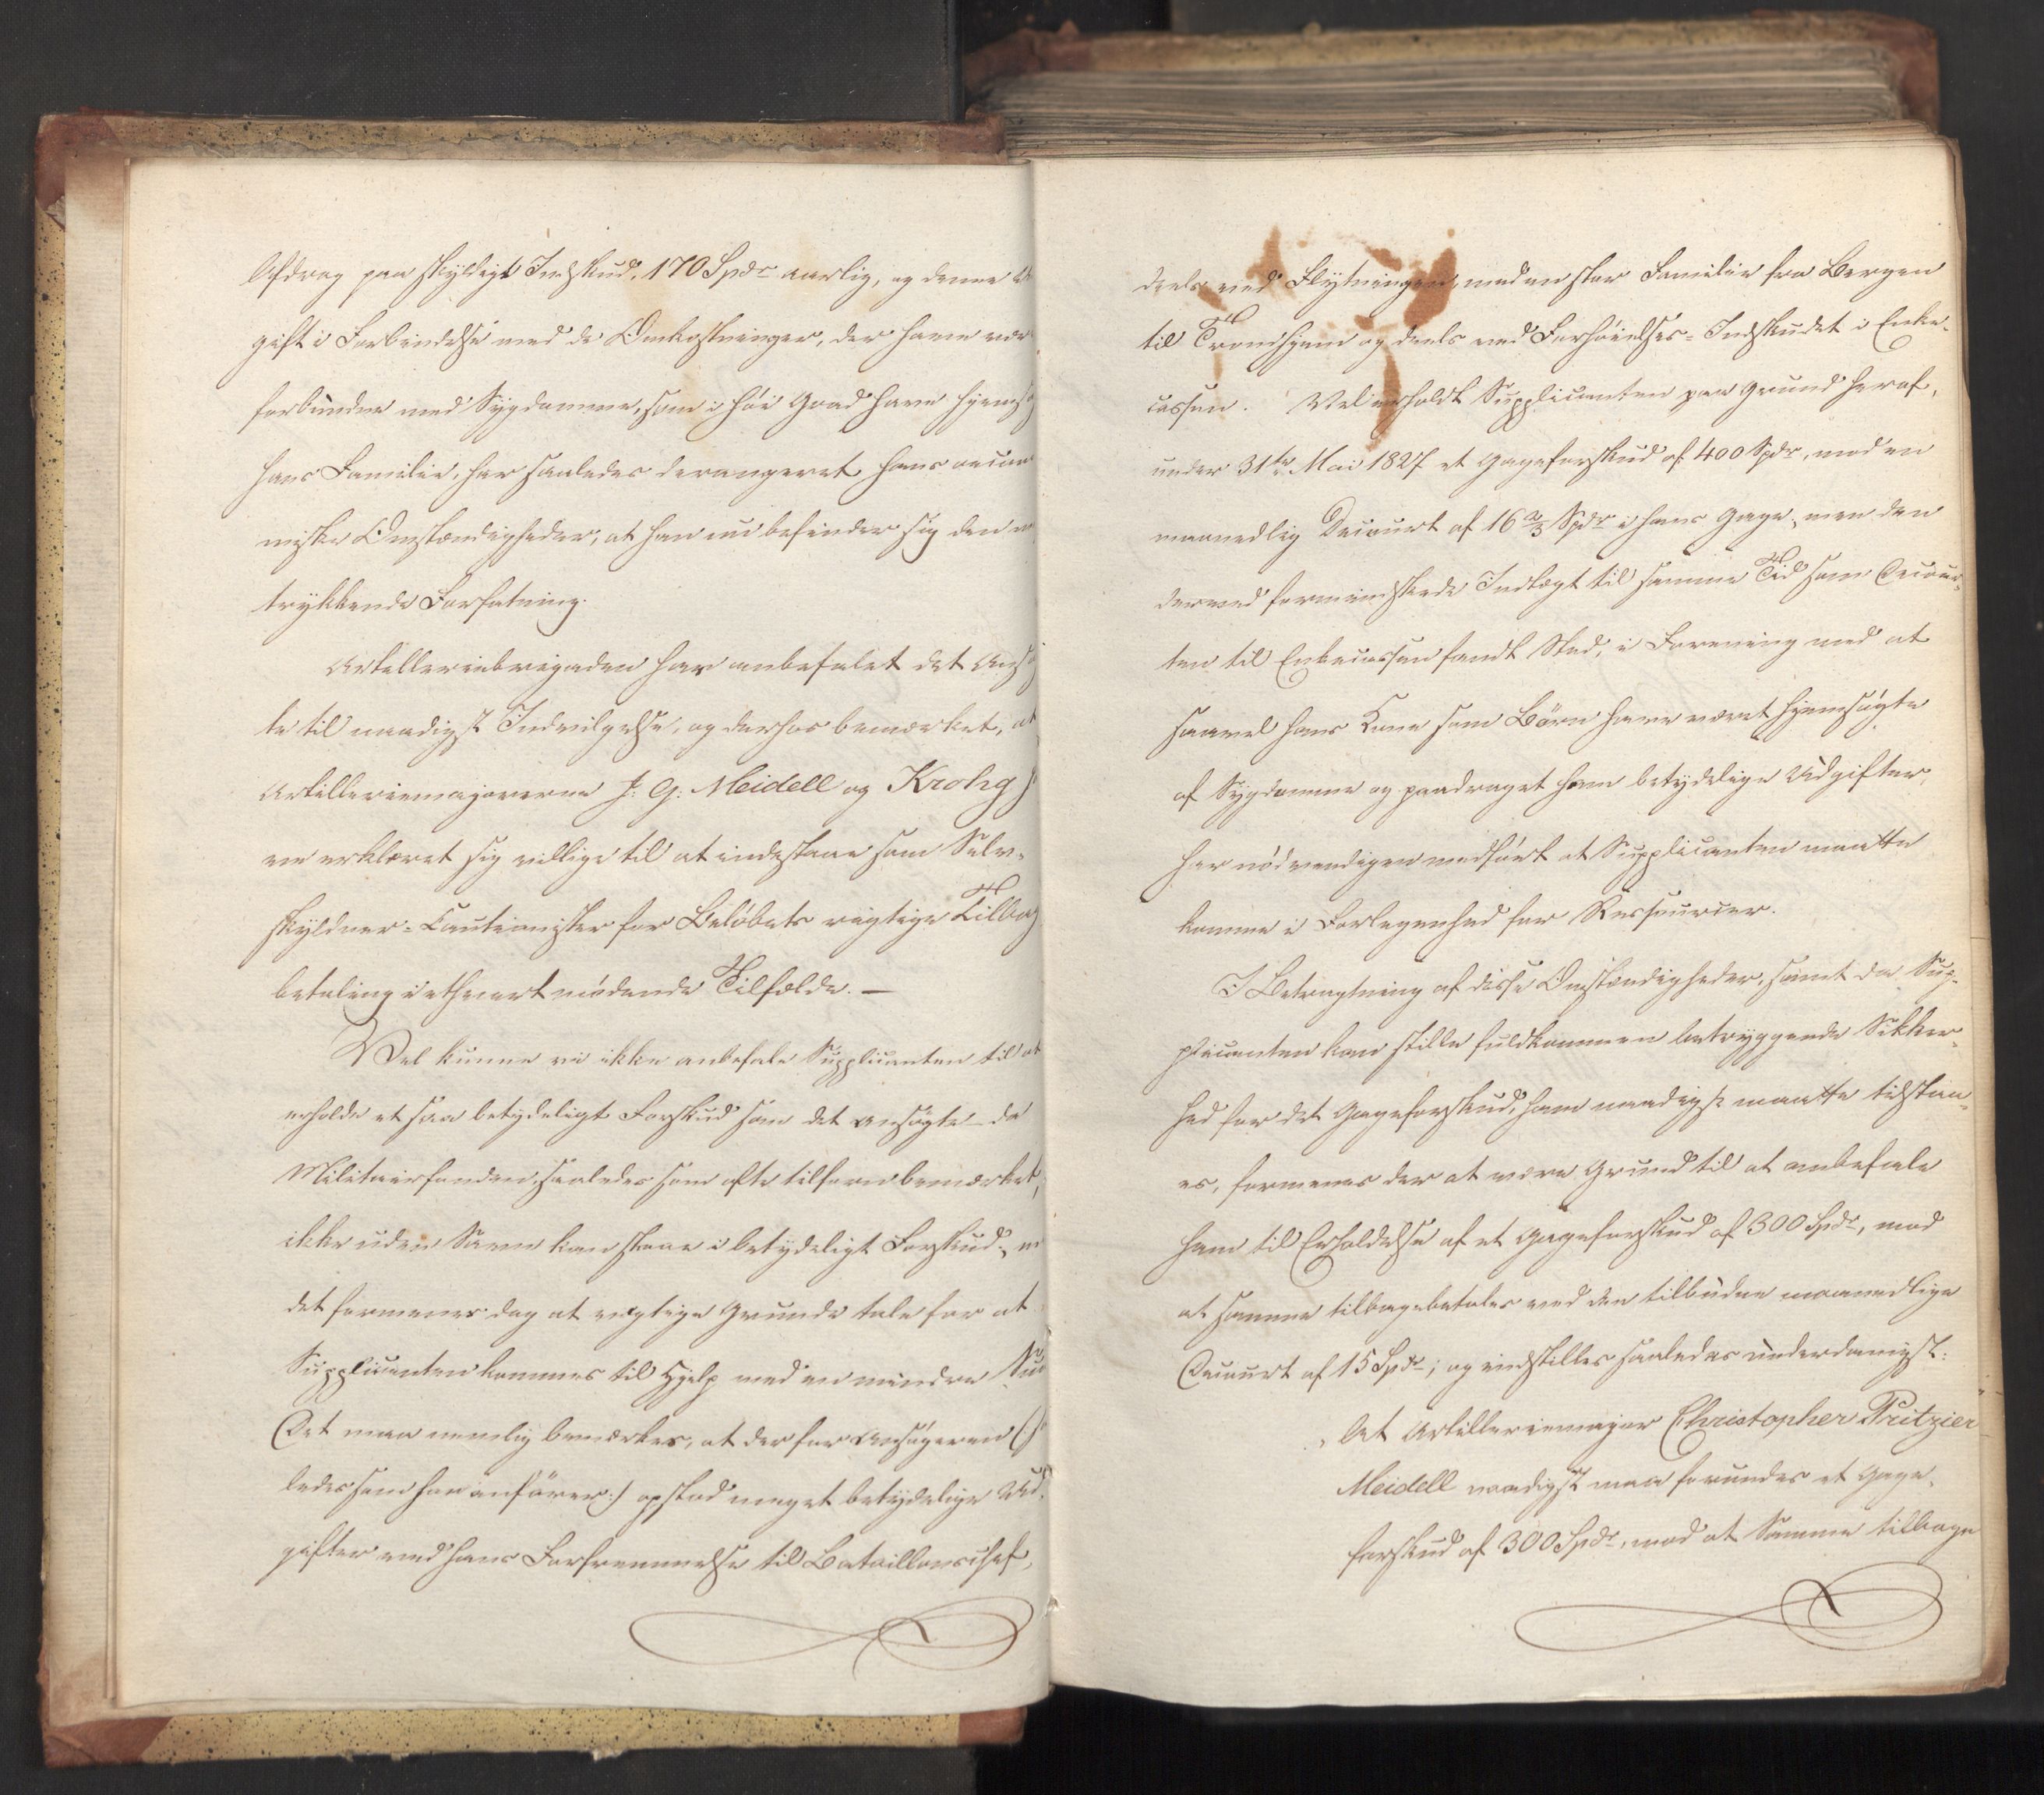 Afdrag paa skyldigt Indskud, 170 Spdr aarlig, og denne U
gift i Forbindelse med de Omkostninger, der have vær
forbundne med Sygdomme, som i høi Grad have hjemsøg
hans Familie, har saaledes derangeret hans oecono
miske Omstændigheder, at han nu befinder sig den m
trykkende Forfatning.
Artilleriebrigaden har anbefalet det Ansøg
te til naadigst Indvilgelse, og derhos bemærket, at
Artilleriemajorerne J. G. Meidell og Krohg ha
ve erklæret sig villige til at indestaae som Selv-
skyldner-Cautionister for Beløbets rigtige Tilbag
betaling i ethvert mødende Tilfælde. —
Vel kunne vi ikke anbefale Supplicanten til at
erholde et saa betydeligt Forskud som det Ansøgte da
Militairfonden, saaledes som ofte tilforn bemærket,
ikke uden Savn kan staae i betydeligt Forskud; m
det formenes dog at vigtige Grunde tale for at
Supplicanten kommes til Hjelp med en mindre Su
Det maa nemlig bemærkes, at der for Ansøgeren (:
ledes som han anfører:) opstod meget betydelige Ud-
gifter ved hans Forfremmelse til Bataillonschef,
deels ved Flytningen med en stor Familie fra Bergen
til Trondhjem og deels ved Forhøielses-Indskudet i Enke-
cassen. Vel erholdt Supplicanten paa Grund heraf,
under 31te Mai 1827 et Gageforskud af 400 Spdr, mod en
maanedlig Decourt af 16 2/3 Spdr i hans Gage, men den
derved formindskede Indtægt til samme Tid som Decour-
ten til Enkecassen fandt Sted, i Forening med at
saavel hans Kone som Børn have været hjemsøgte
af Sygdomme og paadraget ham betydelige Udgifter,
har nødvendigen medført at Supplicanten maatte
komme i Forlegenhed for Ressourcer.
I Betragtning af disse Omstændigheder, samt da Sup-
plicanten kan stille fuldkommen betryggende Sikker-
hed for det Gageforskud, ham naadigst maatte tilstaa-
es, formenes der at være Grund til at anbefale
ham til Erholdelse af et Gageforskud af 300 Spdr, mod
at samme tilbagebetales ved den tilbudne maanedlige
Decourt af 15 Spdr; og indstilles saaledes underdanigst:
At Artilleriemajor Christopher Pritzier
Meidell naadigst maa forundes et Gage-
forskud af 300 Spdr, mod at Samme tilbage